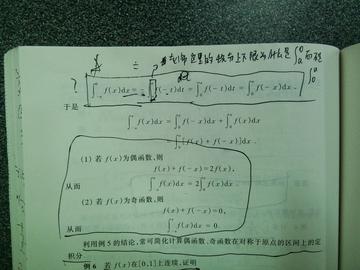 ? ∫_{-a}^{0} f(x)dx = -∫_{a}^{0} f(-t)dt = ∫_{0}^{a} f(-t)dt = ∫_{0}^{a} f(-x)dx .
于是
∫_{-a}^{a} f(x)dx = ∫_{0}^{a} f(-x)dx + ∫_{0}^{a} f(x)dx
= ∫_{0}^{a} [f(x) + f(-x)]dx .
(1) 若 f(x)为偶函数,则
f(x)+f(-x)=2f(x),
从而 ∫_{-a}^{a} f(x)dx = 2∫_{0}^{a} f(x)dx .
(2) 若 f(x)为奇函数,则
f(x)+f(-x)=0,
从而 ∫_{-a}^{a} f(x)dx = 0.
利用例 5 的结论,常可简化计算偶函数、奇函数在对称于原点的区间上的定
积分.
例 6 若 f(x)在[0,1]上连续,证明